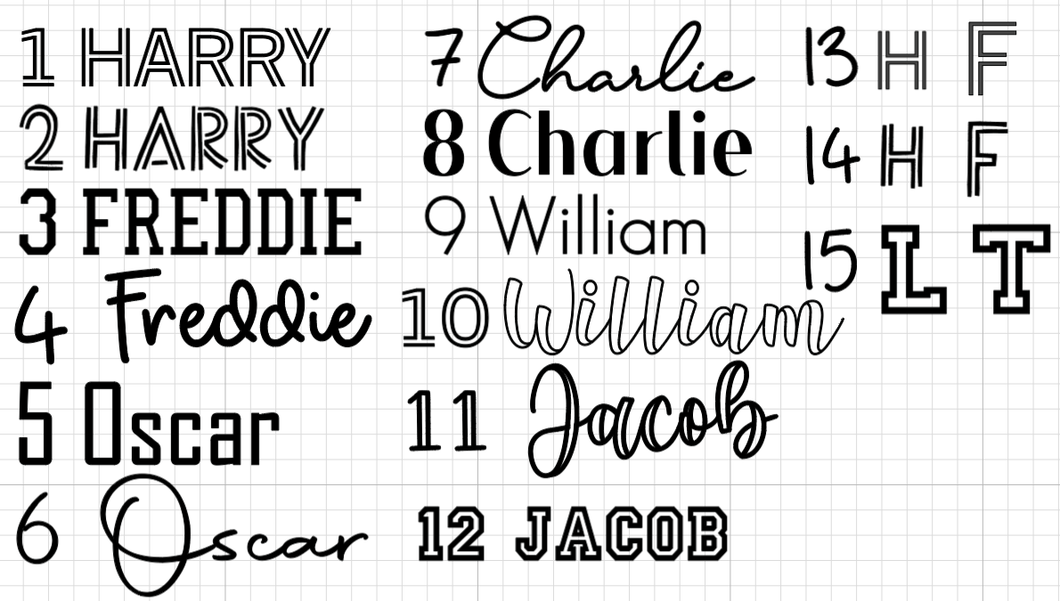 1 HARRY
2 HARRY
3 FREDDIE
4 Freddie
5 Oscar
6 Oscar
7 Charlie
8 Charlie
9 William
10 William
11 Jacob
12 JACOB
13 H F
14 H F
15 L T